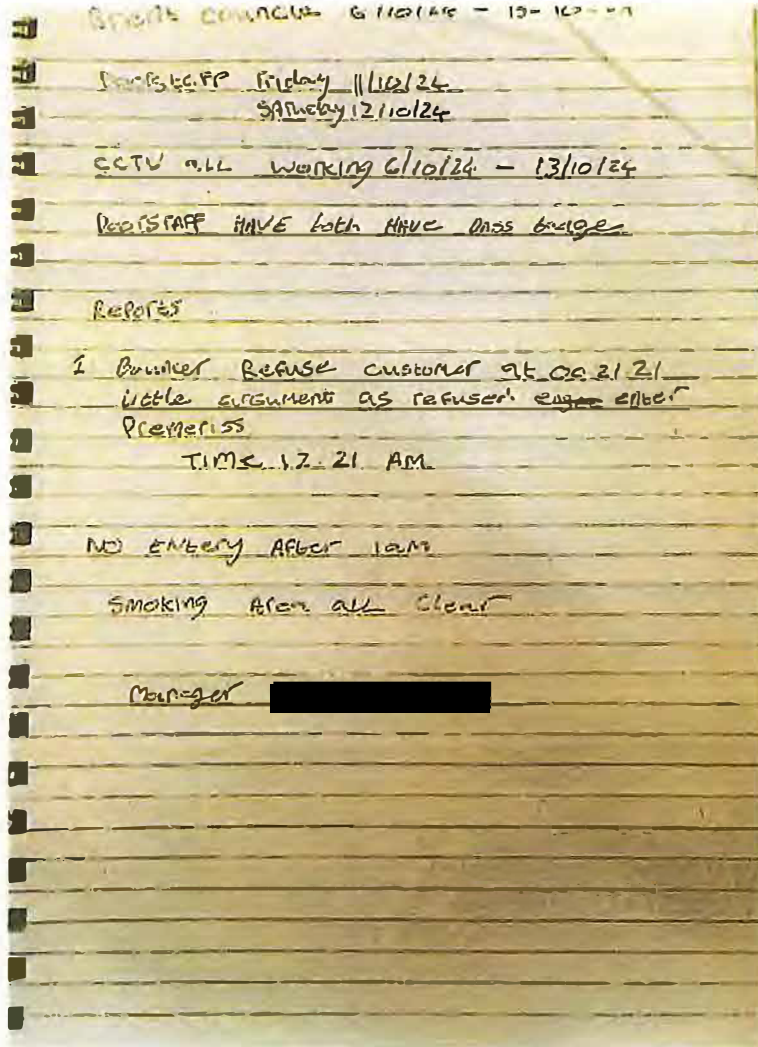 COUNCIL 6/10/24 - 13-10-24
Doorstaff Friday 11/10/24
SATurday 12/10/24
CCTV ALL working 6/10/24 - 13/10/24
DoorSTAFF HAVE both HAVE PASS badge
Reports
1 Bouncer Refuse customer at 00 21 21
little argument as refuser enter
Premeriss
TIME 12.21 AM
NO ENtery After 1am
Smoking Area all Clear
Manager